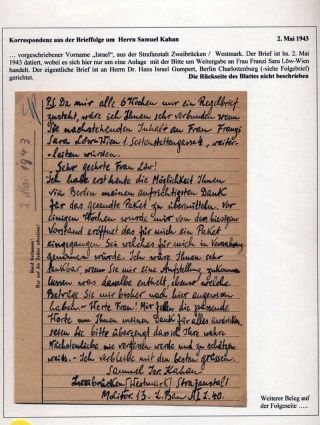 Korrespondenz aus der Brieffolge um Herrn Samuel Kahan
2. Mai 1943
... vorgeschriebener Vorname „Israel", aus der Strafanstalt Zweibrücken / Westmark. Der Brief ist hs. 2. Mai
1943 datiert, wobei es sich hier nur um eine Anlage mit der Bitte um Weitergabe an Frau Franzi Sara Löw-Wien
handelt. Der eigentliche Brief ist an Herrn Dr. Hans Israel Gumpert, Berlin Charlottenburg (-siehe Folgebrief)
gerichtet.
Die Rückseite des Blattes nicht beschrieben
2. Mai 1943
Rand freilassen!
Nur auf die Zeilen schreiben!
PS Da mir alle 6 Wochen nur ein Regelbrief
zusteht, wäre ich Ihnen sehr verbunden wenn
Sie nachstehenden Inhalt an Frau Franzi
Sara Löw-Wien 1. Seitenstettengasse 4, weiter-
leiten würden.
Sehr geehrte Frau Löw!
Ich habe erst heute die Möglichkeit Ihnen
via Berlin meinen aufrichtigsten Dank
für das gesandte Paket zu übermitteln. Vor
einigen Wochen wurde mir von den hiesigen
Vorstand eröffnet das für mich ein Paket
eingegangen sei welches für mich in Verwahrung
genommen würde. Ich wäre Ihnen sehr
dankbar, wenn Sie mir eine Aufstellung zukommen
lassen was dasselbe enthielt, ebenso welche
Beträge Sie mir bisher nach hier angewiesen
haben. - Werte Frau! Mir fehlen die passende
Worte um Ihnen meinen Dank für alles auszudrücken,
seien Sie bitte überzeugt dass ich Ihre wahre
Nächstenliebe nie vergessen werde und zu schätzen
weiss. - Ich verbleibe mit den besten Grüssen
Samuel Isr. Kahan
Zweibrücken (Westmark) Strafanstalt
Weiterer Beleg auf
der Folgeseite .....